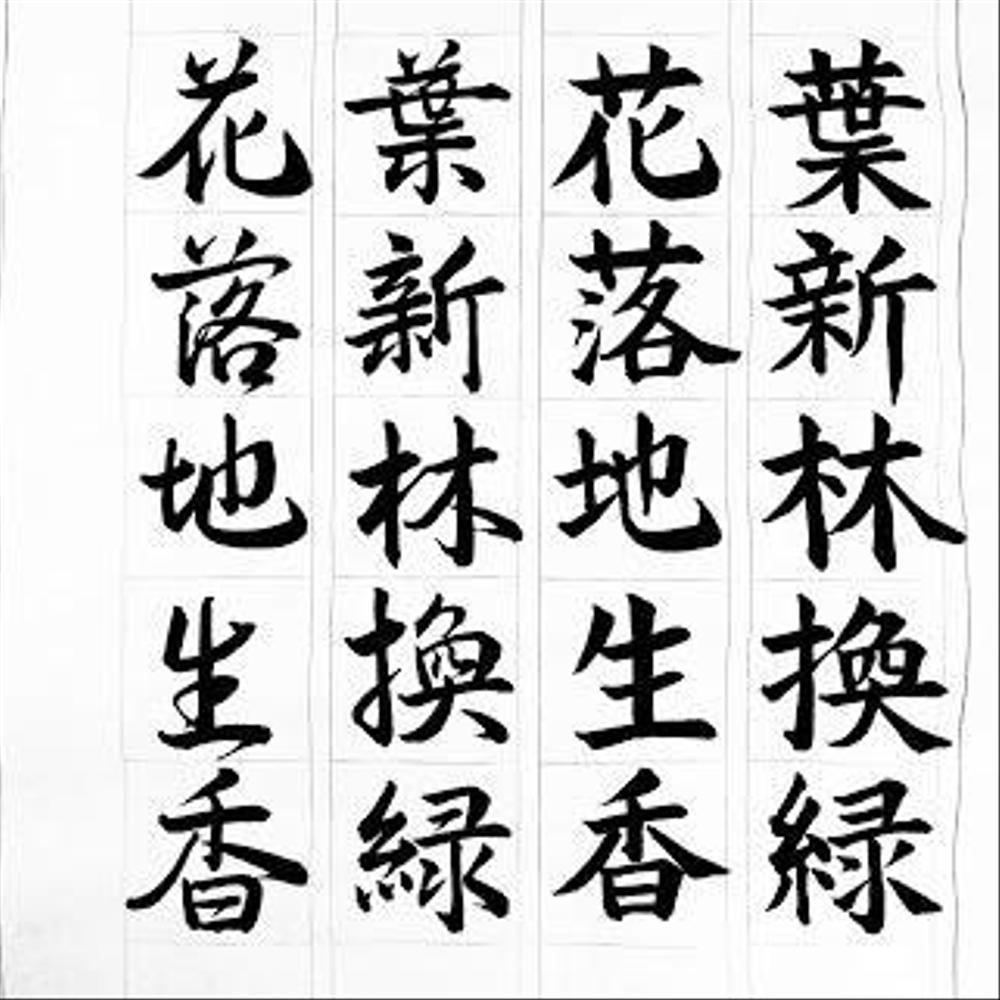 葉新林換緑
花落地生香
葉新林換緑
花落地生香